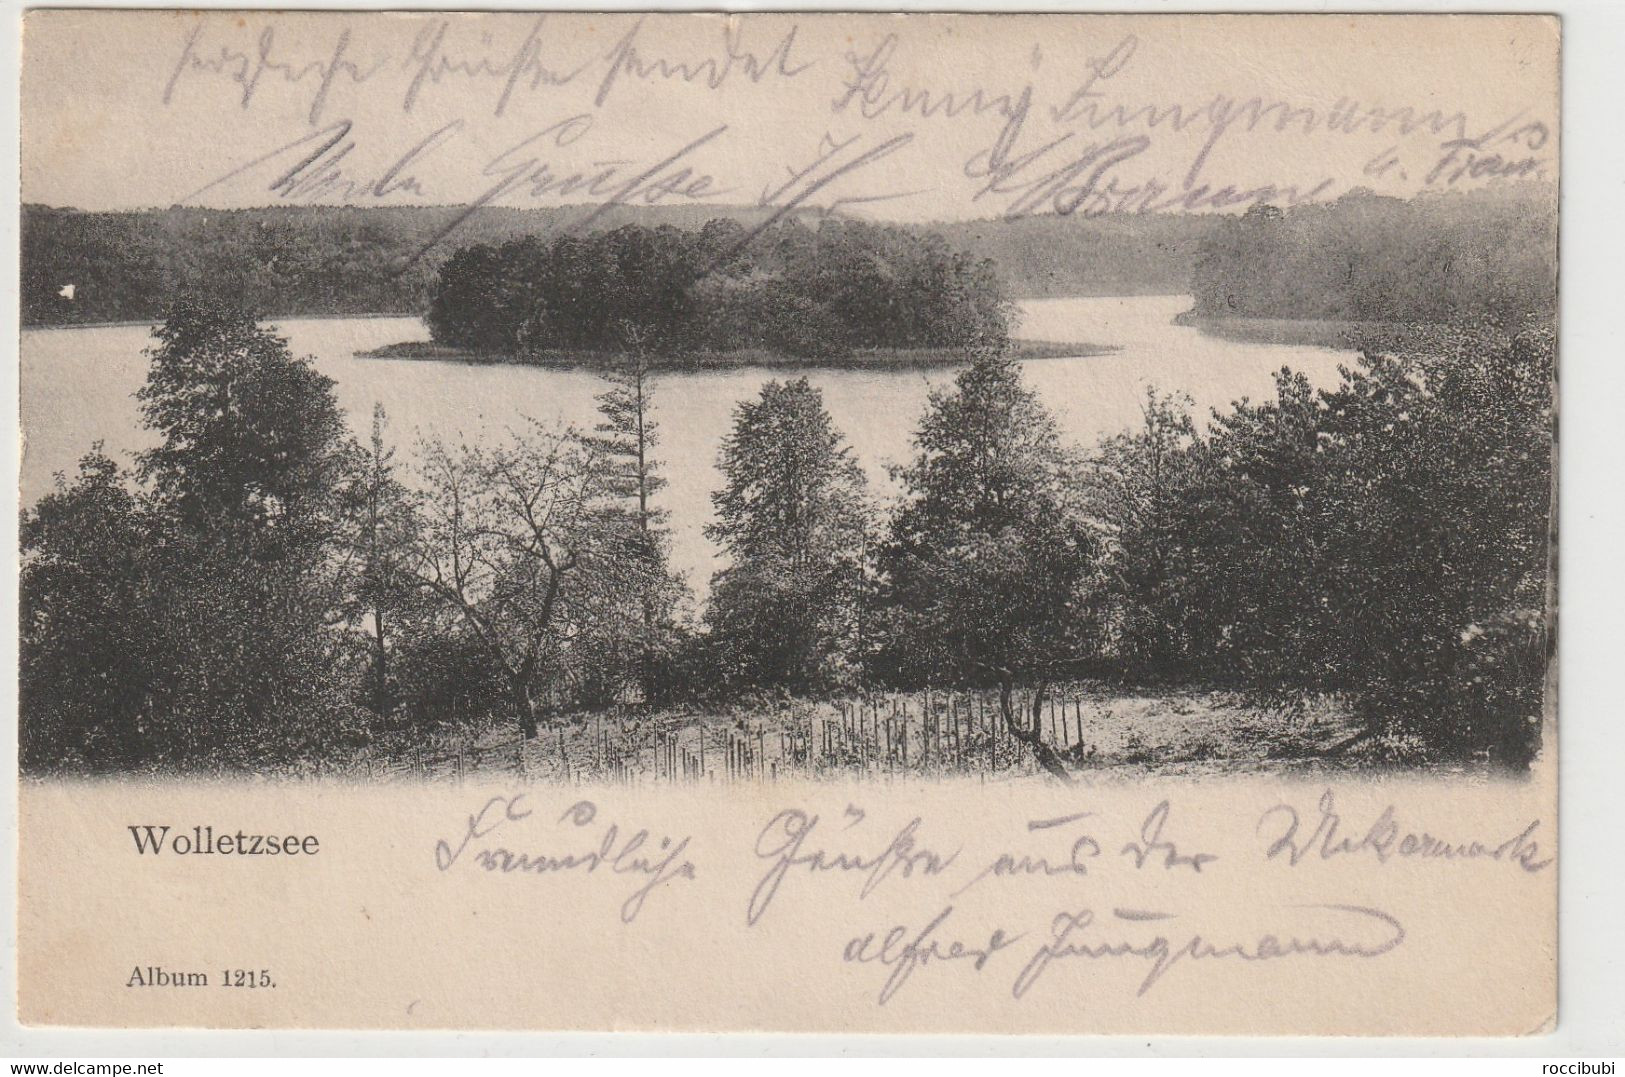 herzliche Grüße sendet Jungmann
Viele Grüsse Ihr Braun u. Frau.
Wolletzsee
Freundliche Grüße aus der Uckermark
Alfred Jungmann
Album 1215.
delcampe.net
roccibubi